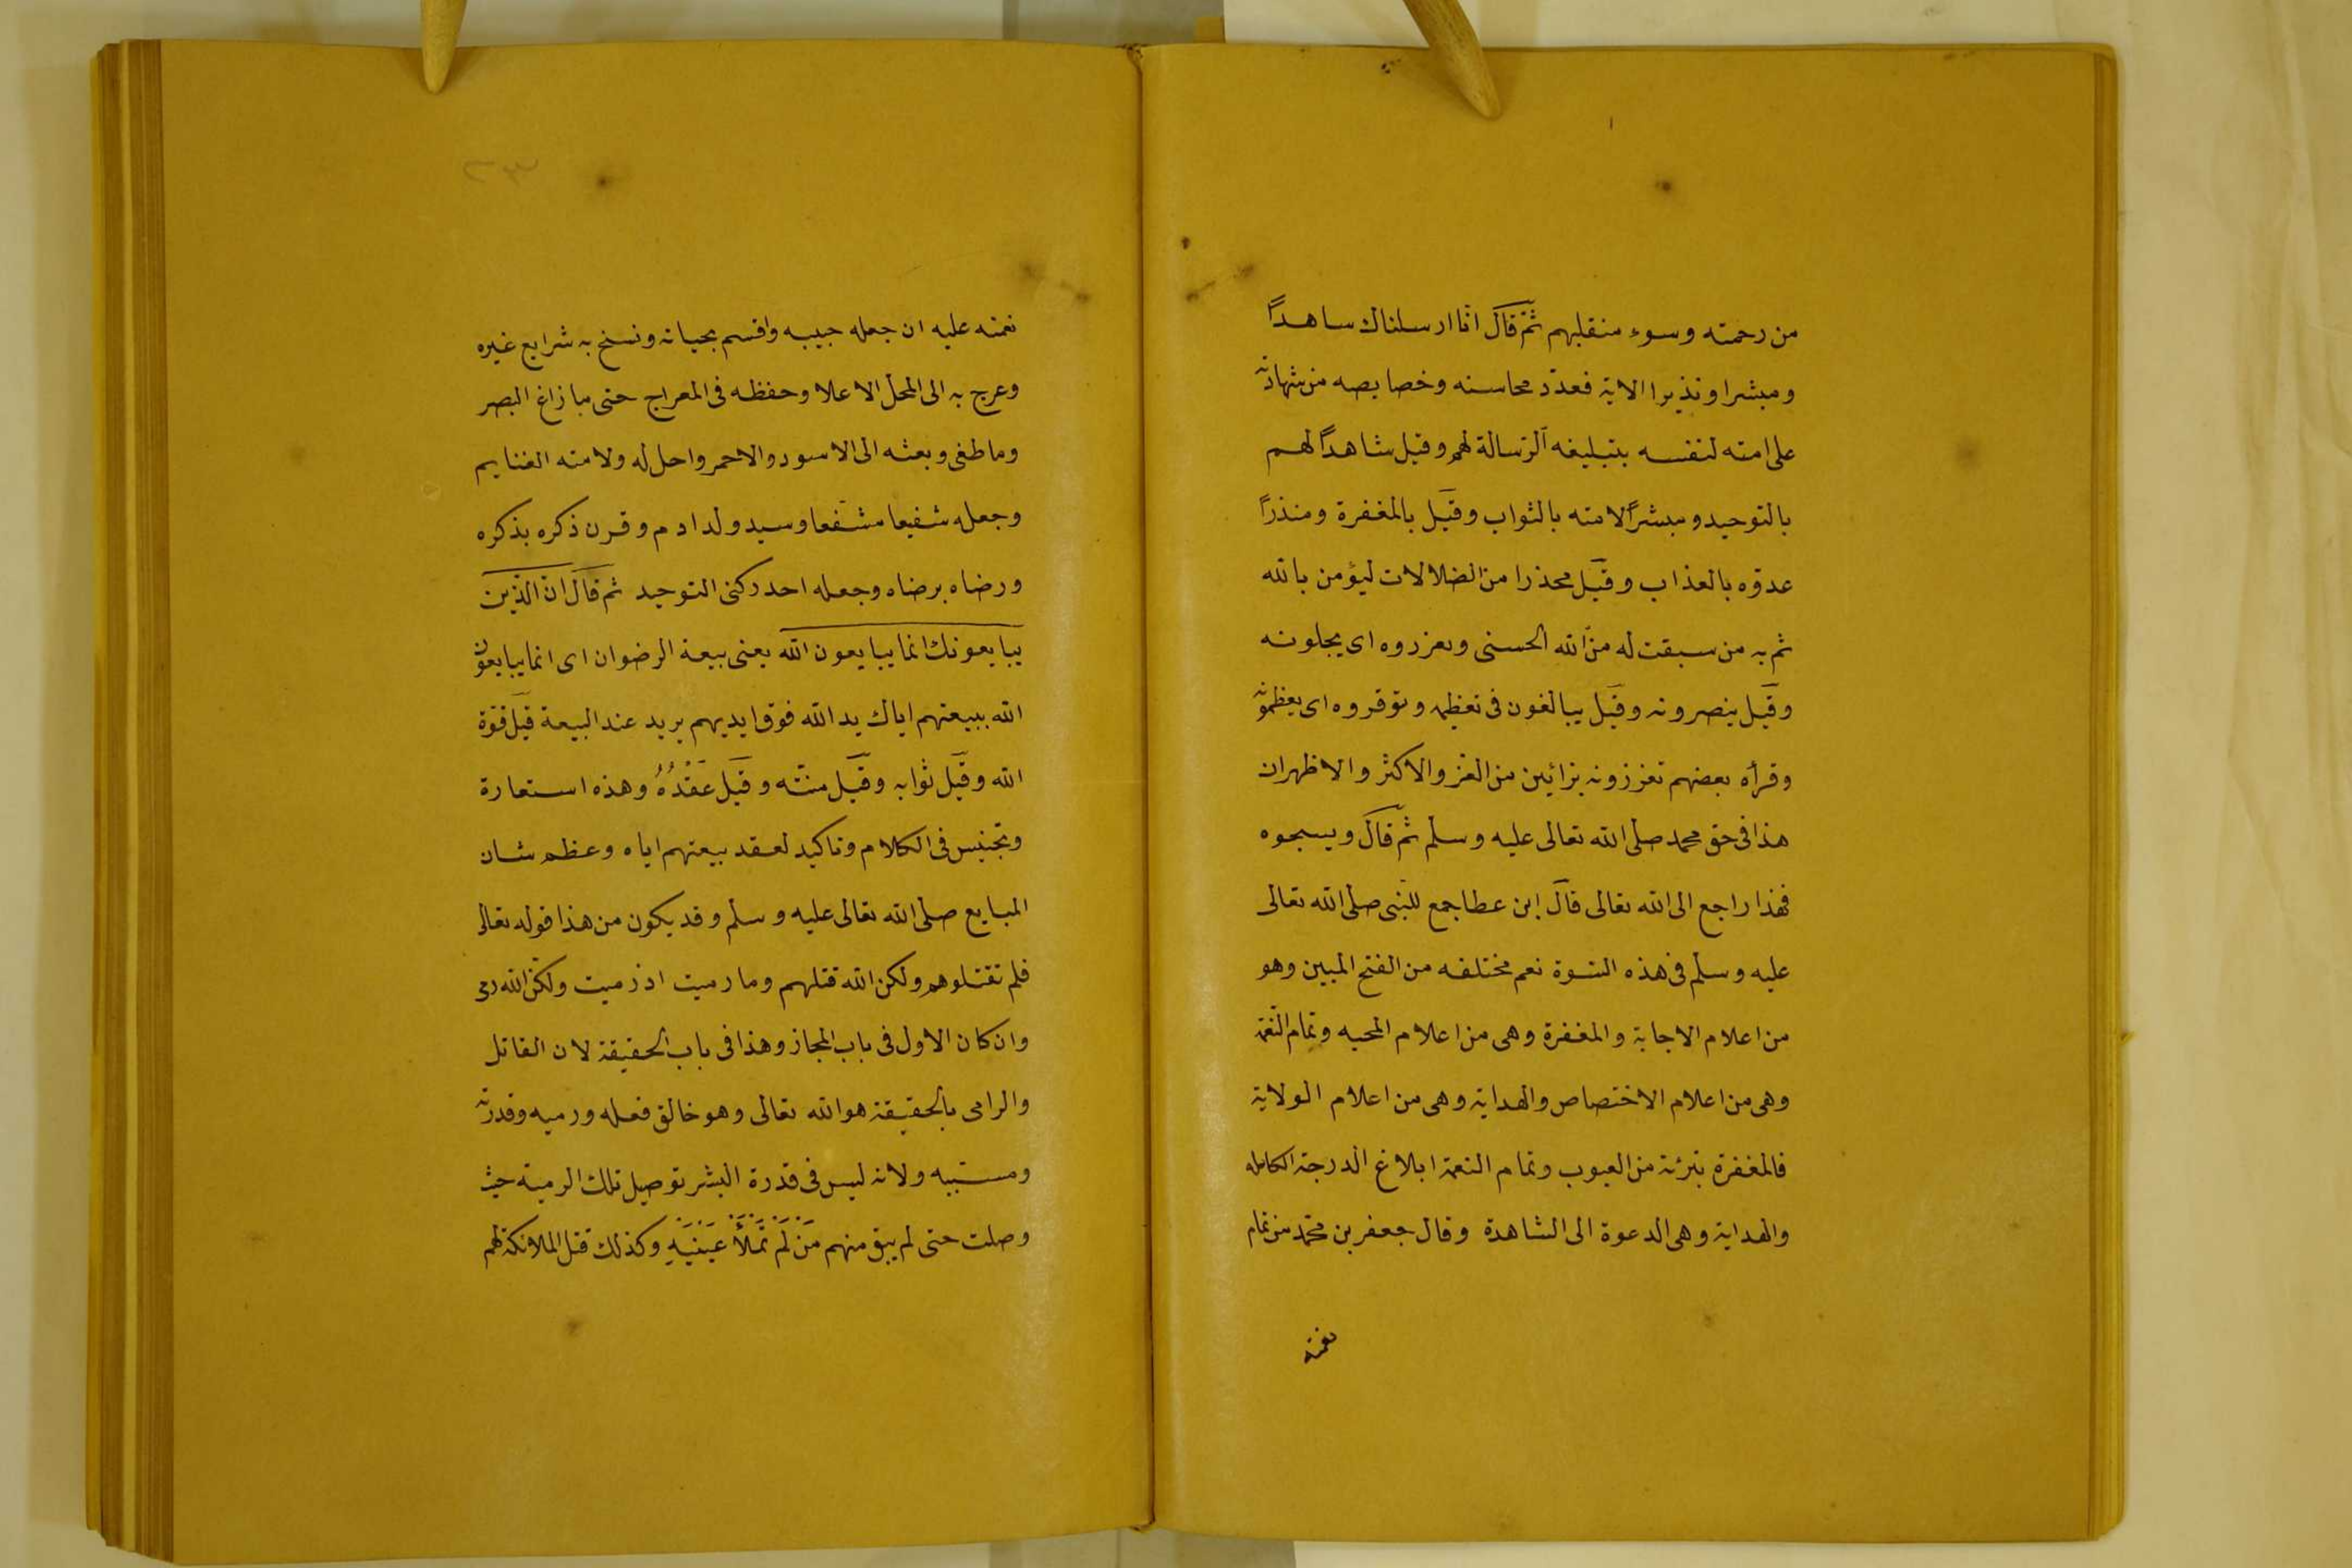 من رحمته وسوء منقلبهم ثمّ قال انّا ارسلناك ساهداً
ومبشرا ونذيرا الاية فعدّد محاسنه وخصايصه من شهادته
على امته لنفسه بتبليغه الرّسالة لهم وقيل شاهداً لهم
بالتوحيد ومبشراً لامته بالثواب وقيل بالمغفرة ومنذراً
عدوّه بالعذاب وقيل محذرا من الضلالات ليؤمن بالله
ثم به من سبقت له من الله الحسنى ويعزروه اى يجلونه
وقيل ينصرونه وقيل يبالغون فى تعظيمه وتوقروه اى يعظمونه
وقرأه بعضهم تعززونه بزائين من العز والاكثر والاظهر ان
هذا فى حق محمد صلى الله تعالى عليه وسلم ثمّ قال ويسبحوه
فهذا راجع الى الله تعالى قال ابن عطا جمع للنّبى صلى الله تعالى
عليه وسلم فى هذه السّورة نعم مختلفه من الفتح المبين وهو
من اعلام الاجابة والمغفرة وهى من اعلام المحبه وتمام النّعمة
وهى من اعلام الاختصاص والهداية وهى من اعلام الولاية
فالمغفرة تبرئة من العيوب وتمام النعمة ابلاغ الدرجة الكامله
والهداية وهى الدعوة الى الشاهدة وقال جعفر بن محمّد من تمام
نعمته
٢٣
نعمته عليه ان جعله حبيبه واقسم بحياته ونسخ به شرايع غيره
وعرج به الى المحل الاعلا وحفظه فى المعراج حتى ما زاغ البصر
وما طغى وبعثه الى الاسود والاحمر واحل له ولامته الغنايم
وجعله شفيعا مشفعا وسيد ولد ادم وقرن ذكره بذكره
ورضاه برضاه وجعله احد ركنى التوحيد ثم قال انّ الّذين
يبايعونك انما يبايعون الله يعنى بيعة الرضوان اى انما يبايعون
الله ببيعتهم اياك يد الله فوق ايديهم يريد عند البيعة قيل قوّة
الله وقيل ثوابه وقيل منّته وقيل عَقْدُهُ وهذه استعارة
وتجنيس فى الكلام وتاكيد لعقد بيعتهم اياه وعظم شان
المبايع صلى الله تعالى عليه وسلم وقد يكون من هذا قوله تعالى
فلم تقتلوهم ولكن الله قتلهم وما رميت اذ رميت ولكنّ الله رمى
وان كان الاول فى باب المجاز وهذا فى باب الحقيقة لان القاتل
والرامى بالحقيقة هو الله تعالى وهو خالق فعله ورميه وقدرته
ومسببه ولانه ليس فى قدرة البشر توصيل تلك الرمية حيث
وصلت حتى لم يبق منهم مَنْ لَمْ تَمْلَأْ عَيْنَيْهِ وكذلك قتل الملائكة لهم